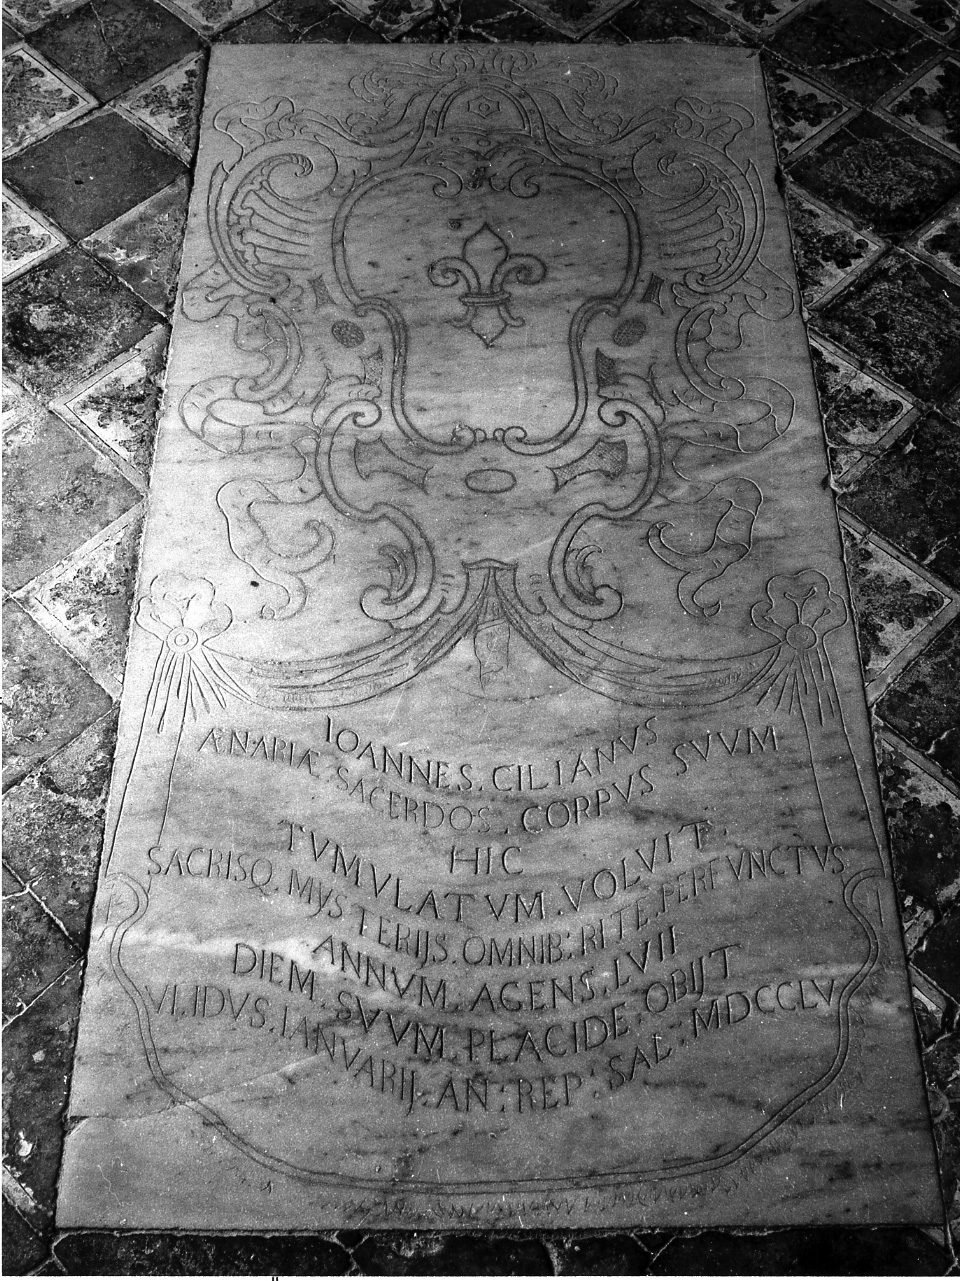 IOANNES.CILIANVS
ÆNARIÆ.SACERDOS.CORPVS.SVVM
HIC
TVMVLATVM.VOLVIT.
SACRISQ.MYSTERIJS.OMNIB:RITE.PERFVNCTVS
ANNVM.AGENS.LVII
DIEM.SVVM.PLACIDE.OBIJT
VI.IDVS.IANVARIJ.AN:REP:SAL:MDCCLV